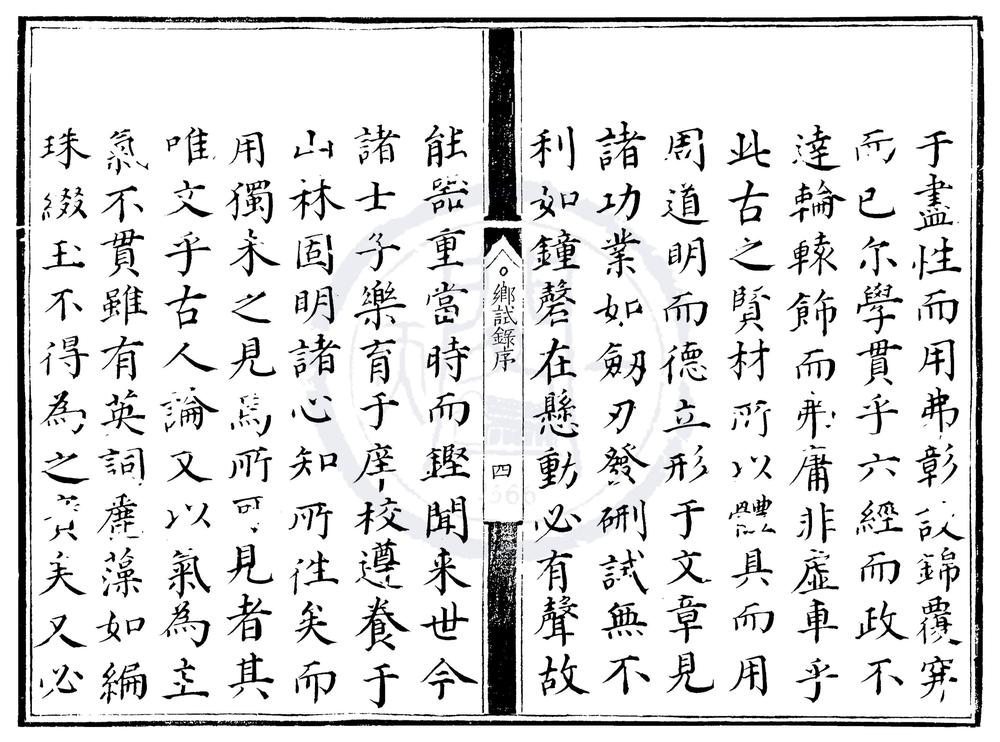 于盡性而用弗彰設錦覆穽
而已尔學貫乎六經而政不
達輪轅飾而弗庸非虛車乎
此古之賢材所以體具而用
周道明而德立形于文章見
諸功業如劒刃發硎試無不
利如鐘磬在懸動必有聲故
鄉試錄序
四
能器重當時而鏗聞来世今
諸士子樂育于庠校遵養于
山林固明諸心知所徃矣而
用獨未之見焉所可見者其
唯文乎古人論文以氣為主
氣不貫雖有英詞麗藻如編
珠綴玉不得為之貴矣又必